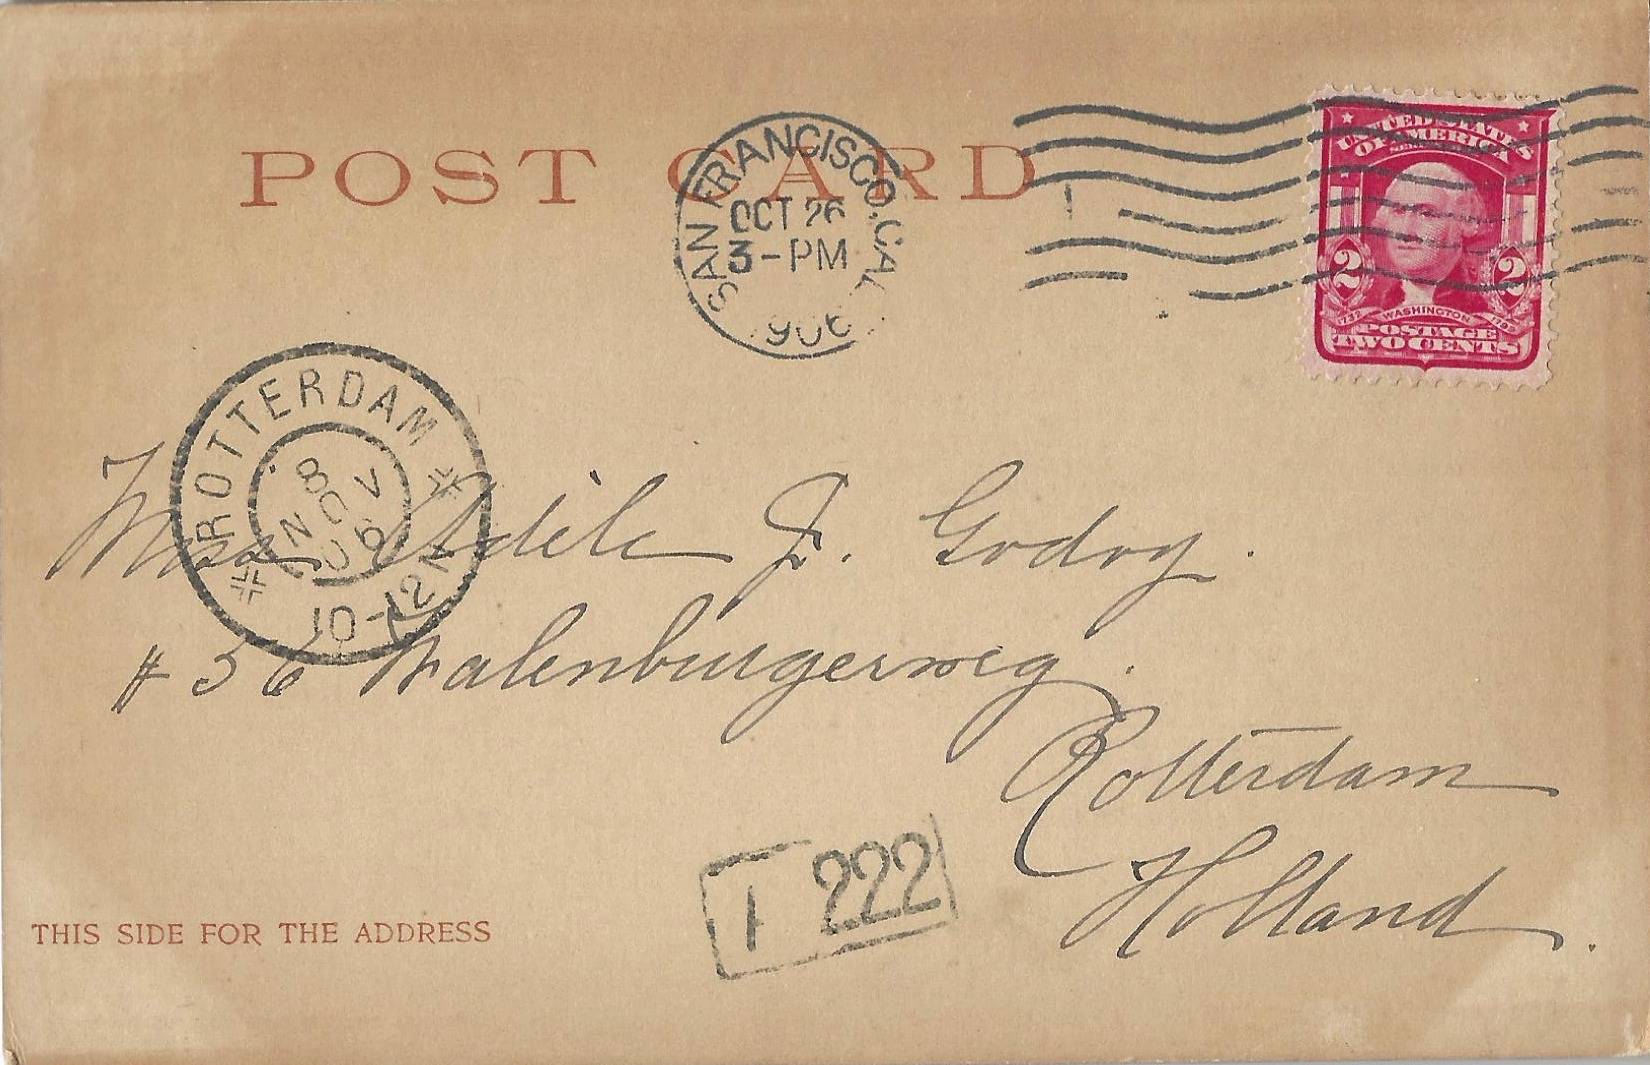 POST CARD
SAN FRANCISCO, CAL.
OCT 26
3-PM
1906
UNITED STATES
OF AMERICA
2 2
1732 WASHINGTON 1799
POSTAGE
TWO CENTS
ROTTERDAM
8
NOV
06
10-12V
Miss Adèle J. Godoy.
# 56 Walenburgerweg.
Rotterdam
Holland.
222
THIS SIDE FOR THE ADDRESS